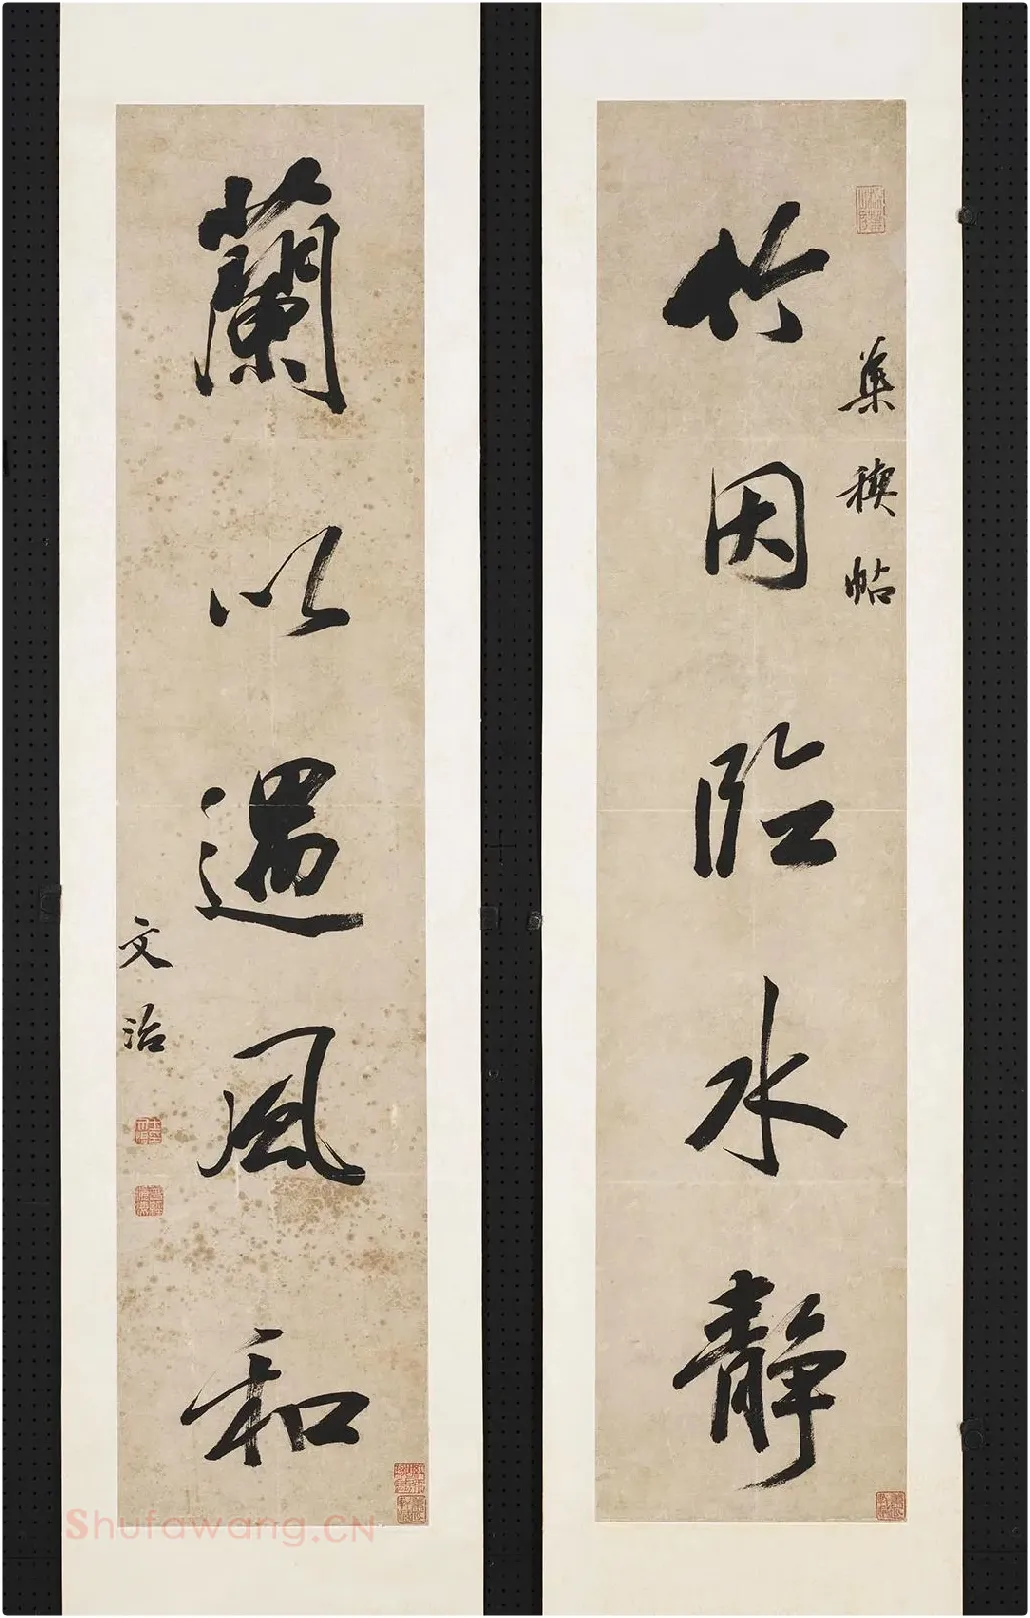 竹因臨水靜
集稧帖
蘭以遇風和
文治
Shufawang.CN